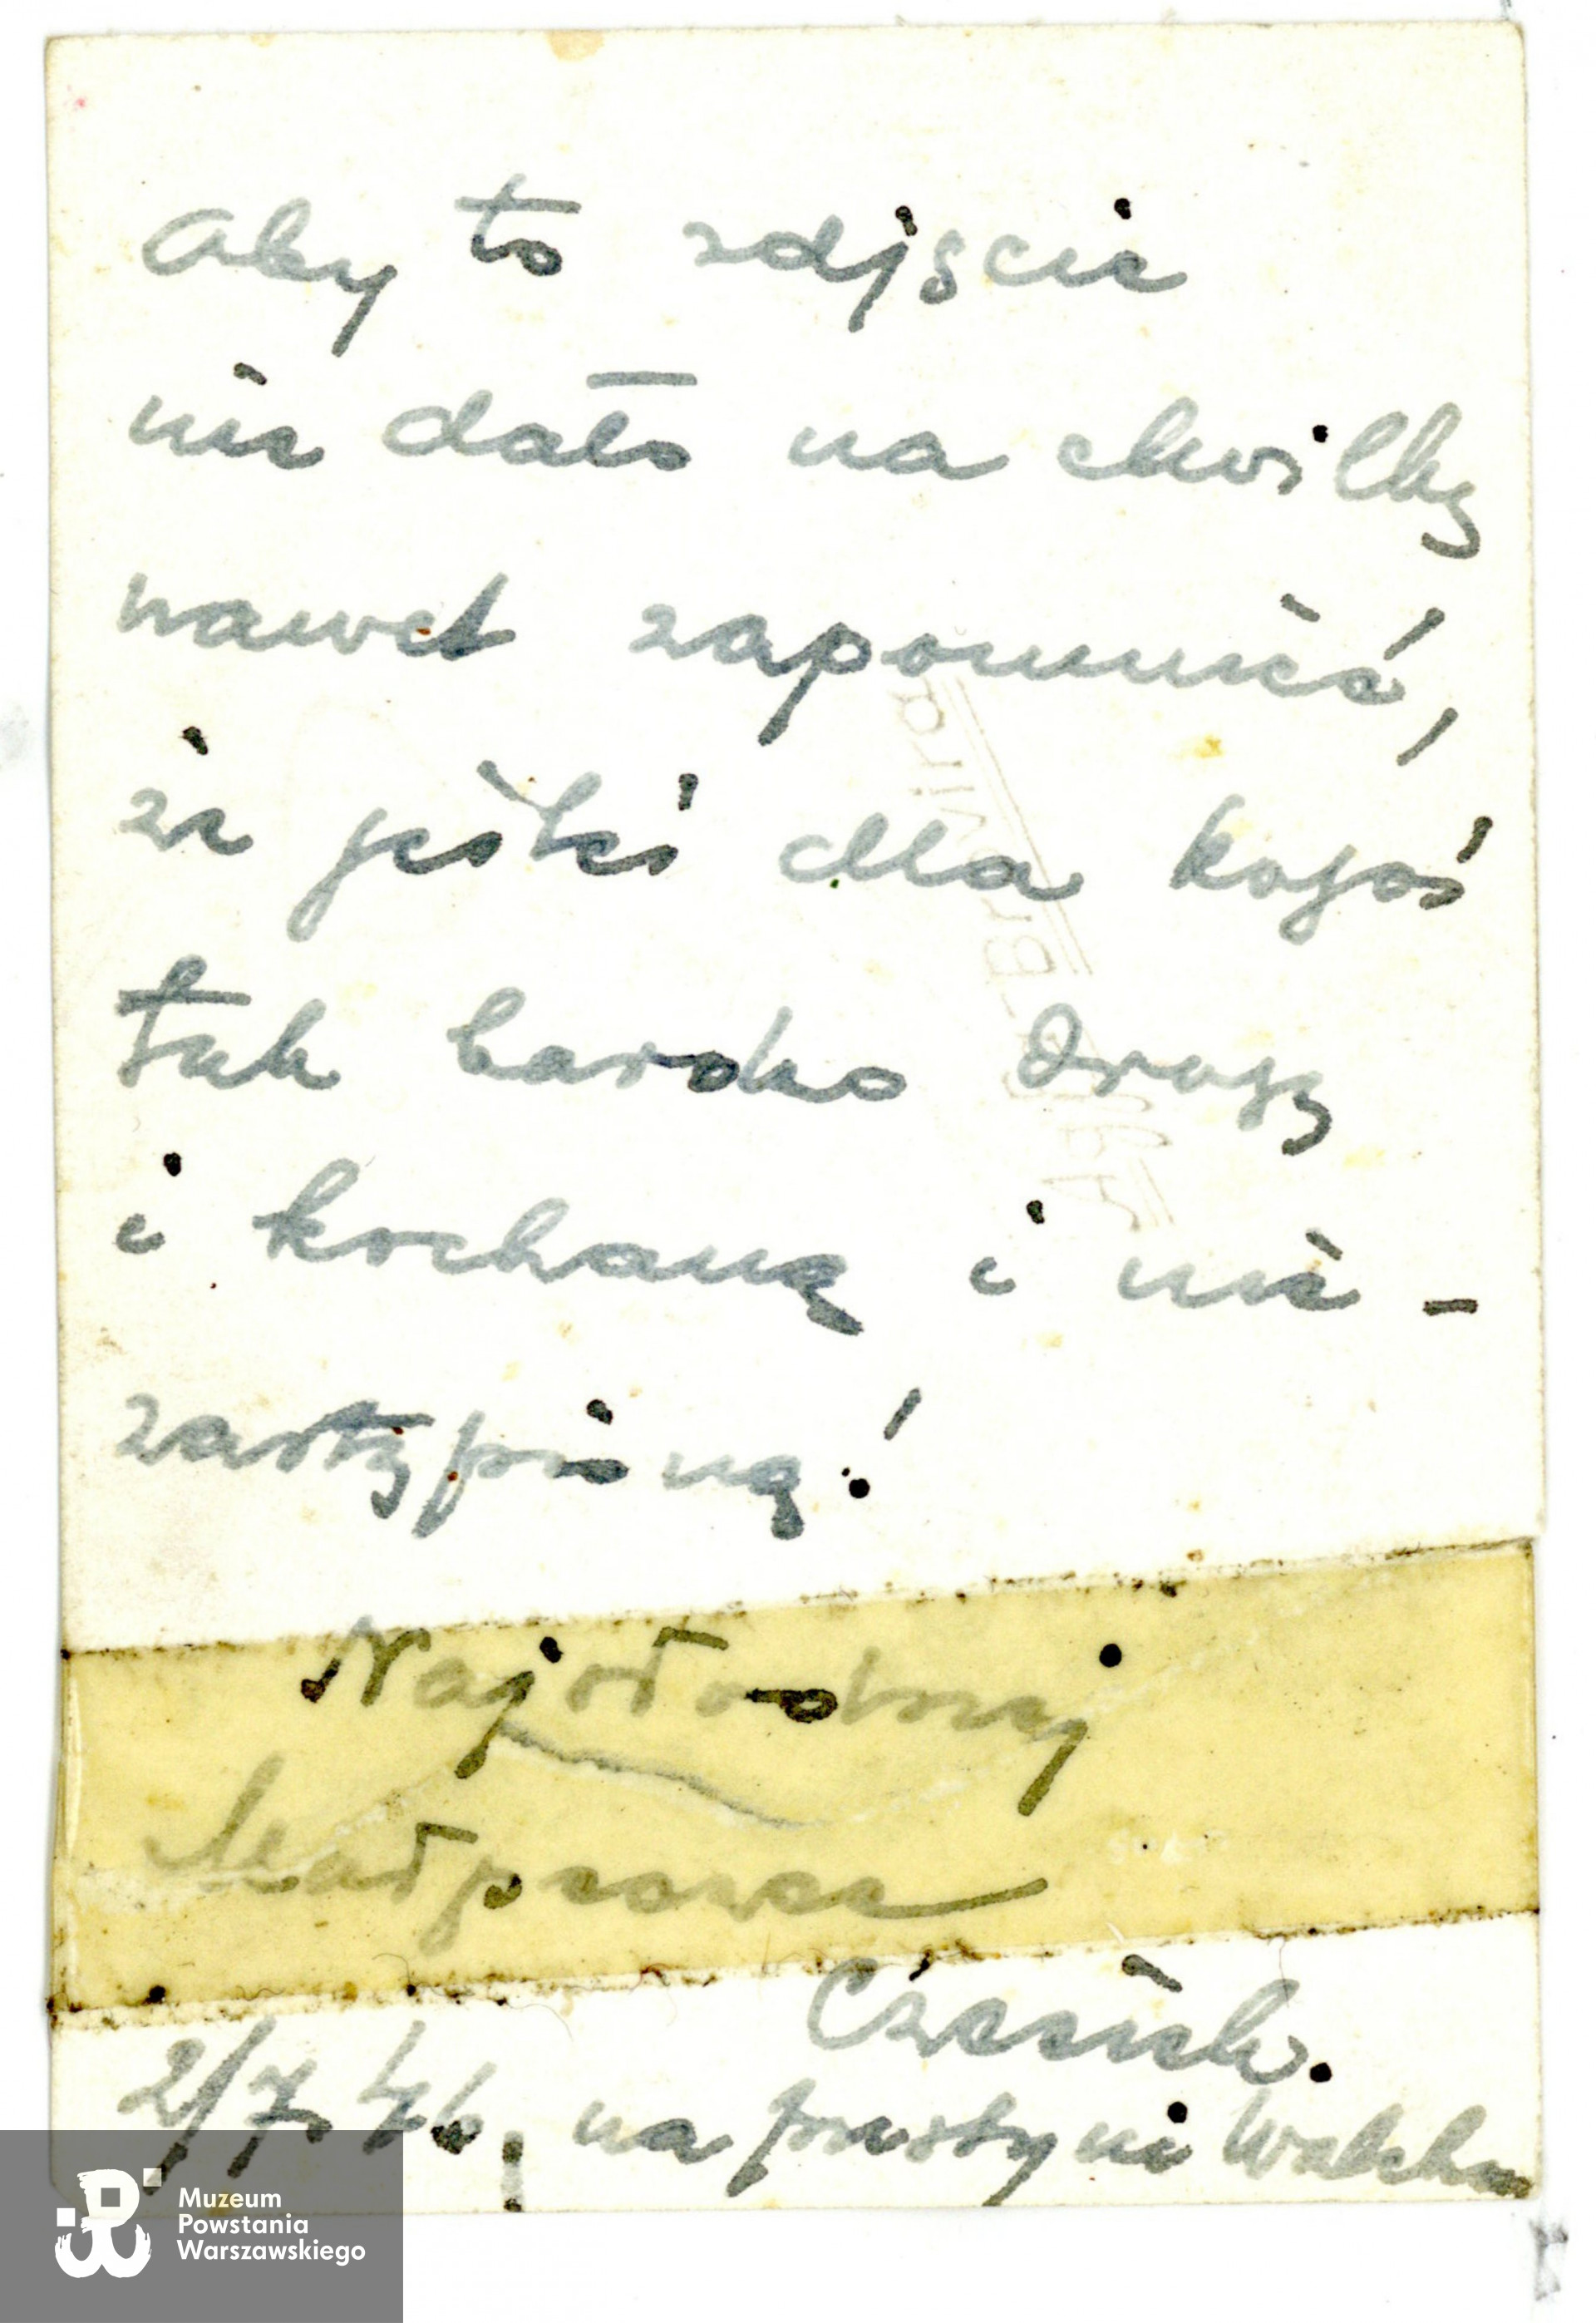 Aby to zdjęcie
nie dało na chwilkę
nawet zapomnieć,
że jesteś dla kogoś
tak bardzo drogą
i kochaną i nie-
zastąpioną!
Najsłodszej
Czesiek.
2/7. 46. na pustyni
Muzeum
Powstania
Warszawskiego